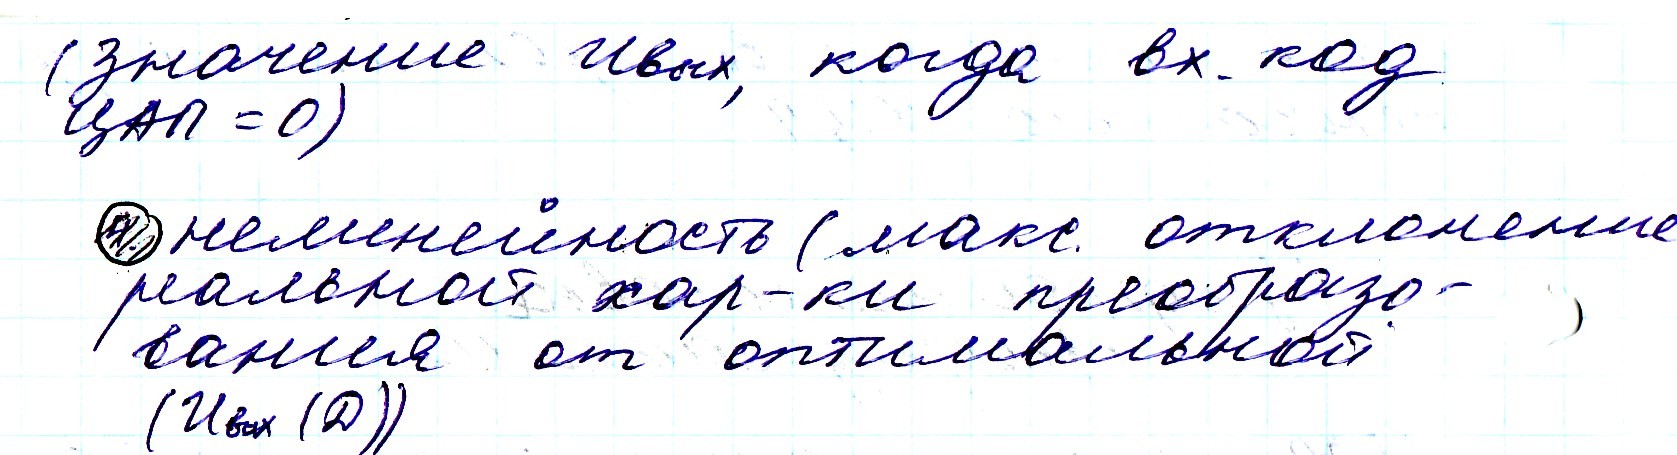 (значение Uвых, когда вх. код
ЦАП = 0)
4.) нелинейность (макс. отклонение
реальной хар-ки преобразо-
вания от оптимальной
(Uвых (D))